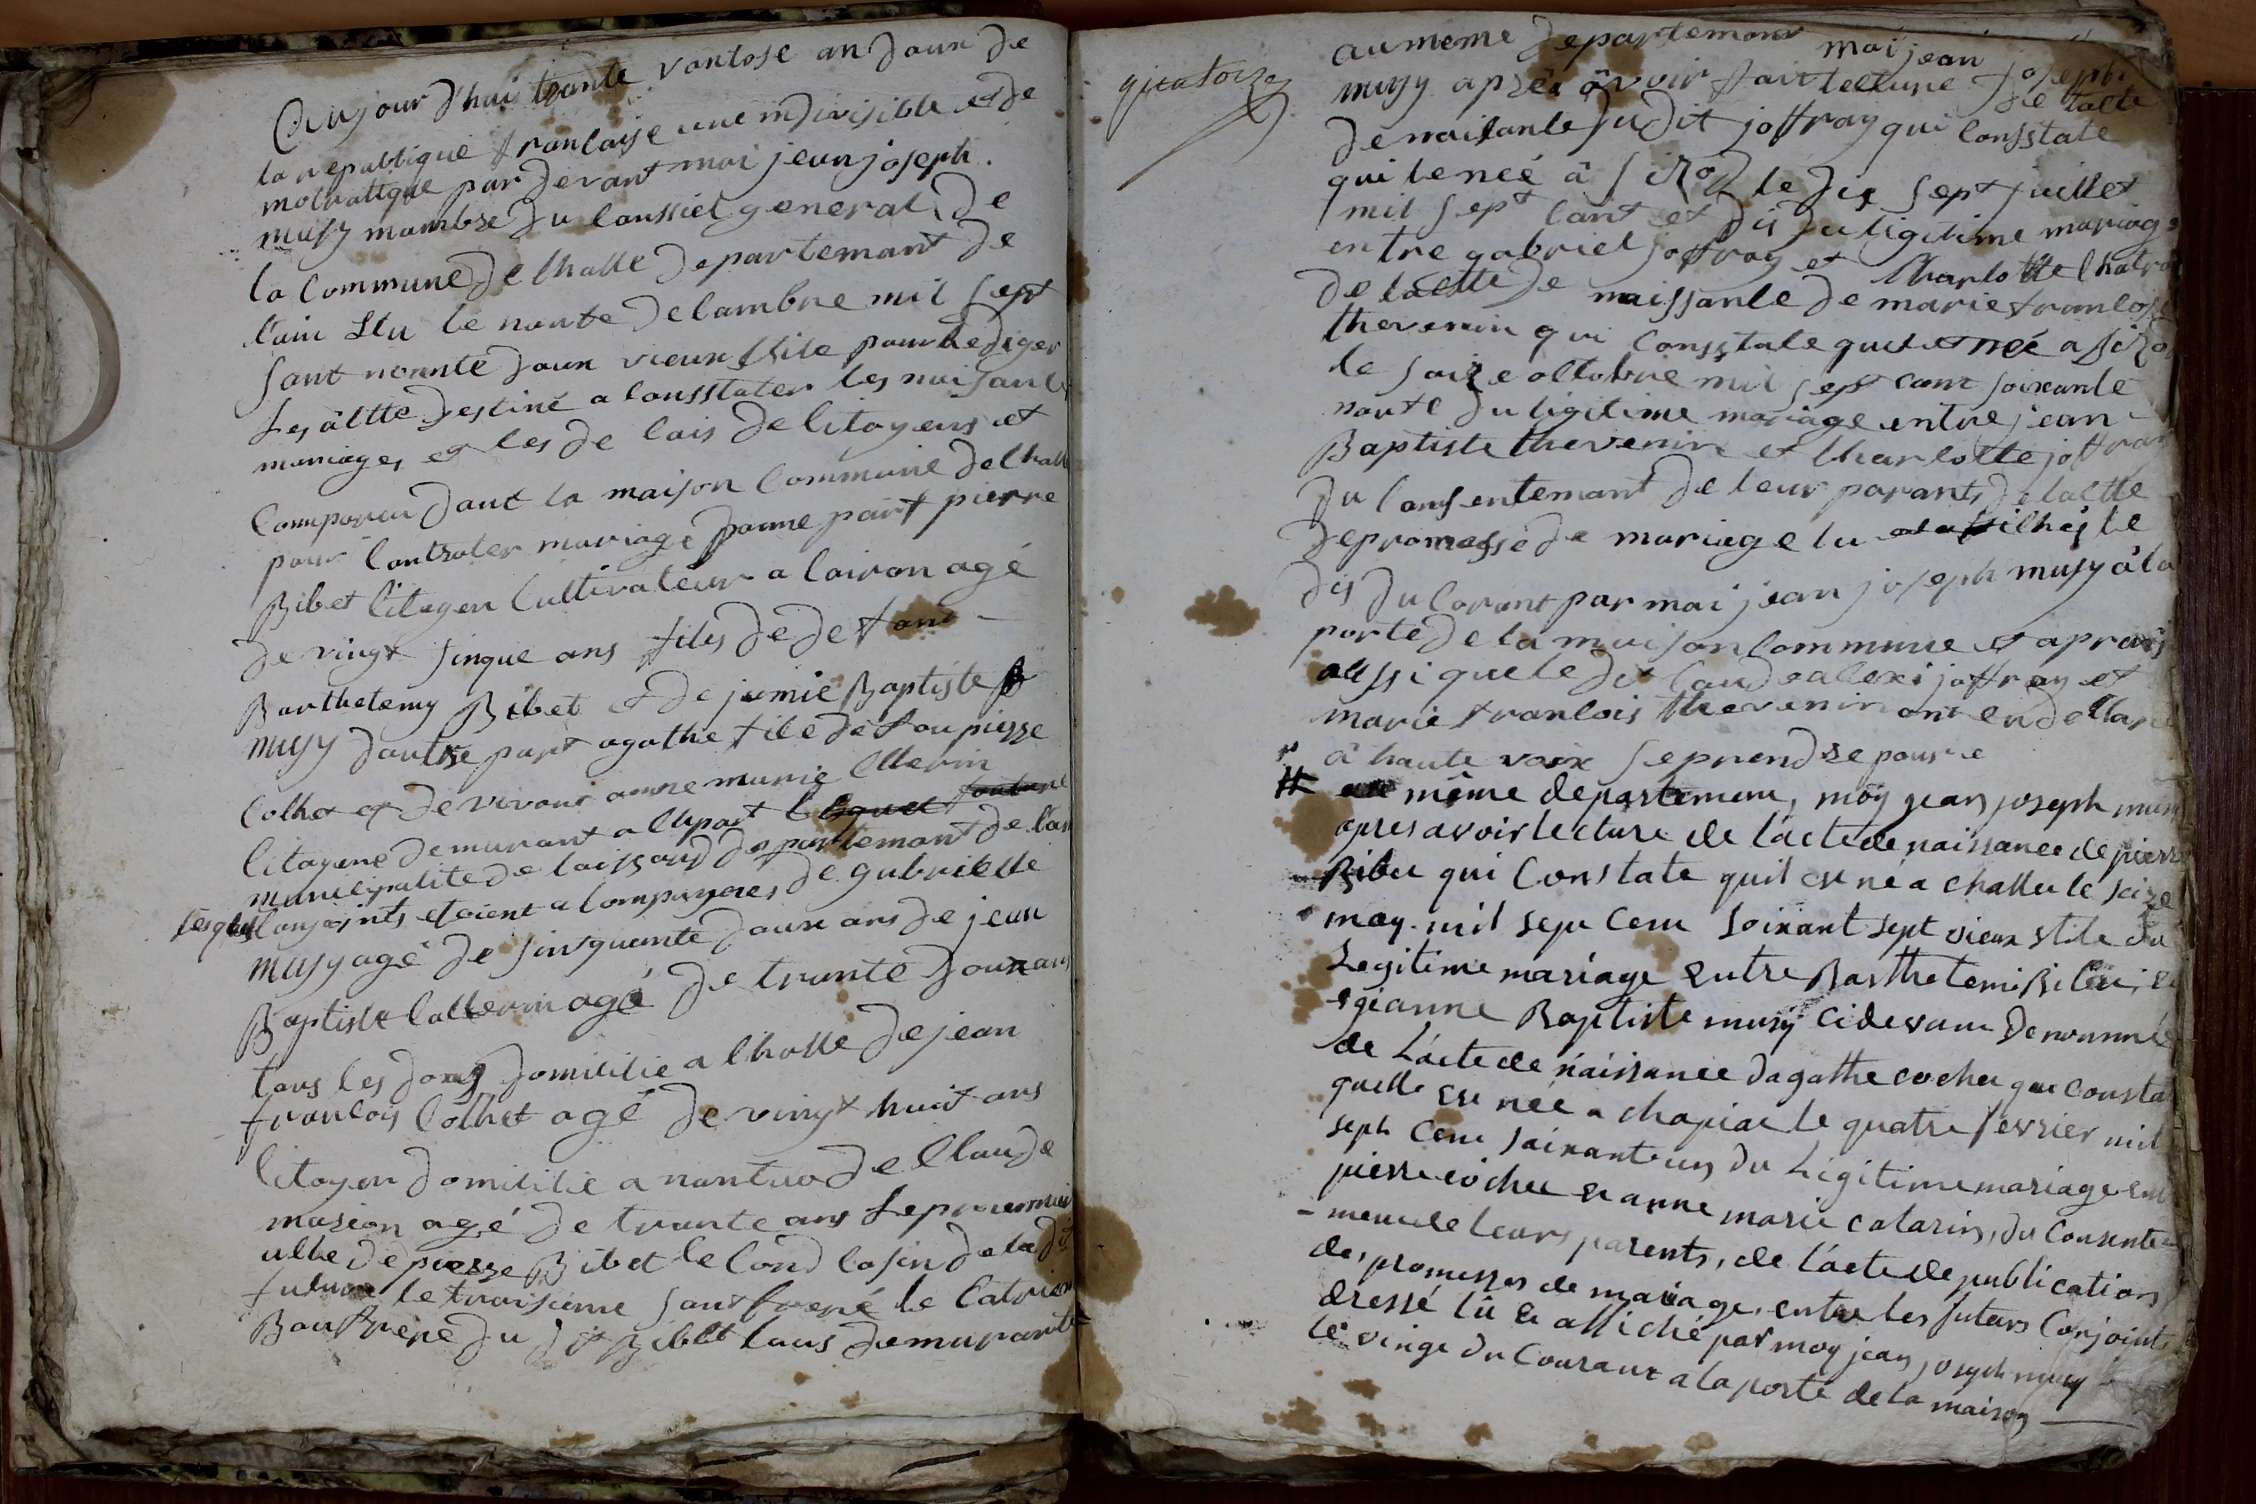 Aujourd'hui trante vantose an daux de
la republique francaise une indivisible et de
mocratique par devant moi jean joseph
musy mambre du conssiel general de
la commune de challe departemant de
lain Elu le nonte decambre mil sept
sant nonnte daux vieux stile pour rediger
les actte destiné a consstater les naisance
mariages et les de cais de citoyens et
comparu dans la maison commune de challe
pour contrater mariage danne part pierre
Bibet citoyen cultivateur a coiron agé
de vingt sinque ans fils de defant
Barthelemy Bibet et de jannie Baptiste
musy dautre part agathe file de fau pierre
cochet et de vivant anne marie
citoyene demurant a chapiat
municipalité de departemant de lain
lesquels conjoints etoient acompagnes de gabrielle
musy agé de sinquante daux ans de jean
Baptiste agé de trante daux ans
tous les daux domicilie a challe de jean
francois cochet agé de vingt huit ans
citoyen domicilie a nantua de claude
marion agé de trante ans le premier
de pierre Bibet le cond cosin de la dit
future le troisieme son frere le catrieme
Bau frere du dit Bibet tous demurante
quatorze
au meme departemant moi jean joseph
musy aprés avoir fait lecture de lacte
de naisance du dit joffray qui consstate
qui le né à sizod le dis sept juillet
mil sept cant et dis du ligitime mariage
entre gabriel joffray et charlotte
de lactte de naissance de marie francois
thevenin qui consstate quil et né a sizod
le saize octobre mil sept cant soixante
nonte du ligitime mariage entre jean
Baptiste thevenin et charlotte joffray
du consentemant de leur parants de lactte
de promesse de mariage lu et affiché le
dis du corant par moi jean joseph musy à la
porte de la maison commune et apraís
aussi que le dit claude alexi joffray et
marie francois thevenin ont eu déclaré
à haute voix se prendre pour e
# au même departement, moy jean joseph musy
apres avoir lecture de l'acte de naissance de pierre
Bibet qui Constate quil est né a challe le seize
may mil sept Cent soixant sept vieux stile du
Legitime mariage entre Barthelemi Bibet, et
jéanne Baptiste musy cidevant denommés
de L'acte de naissance dagathe cochet que constate
quelle est née a chapiat le quatre fevrier mil
sept Cent soixante un du Légitime mariage entre
pierre cochet et anne marie catarin, du Consente
-ment de leurs parents, de l'acte de publication
des promesses de mariage entre les futurs Conjoints
dressé lû et affiché par moy jean joseph musy
le vingt du Courant a la porte de la maison